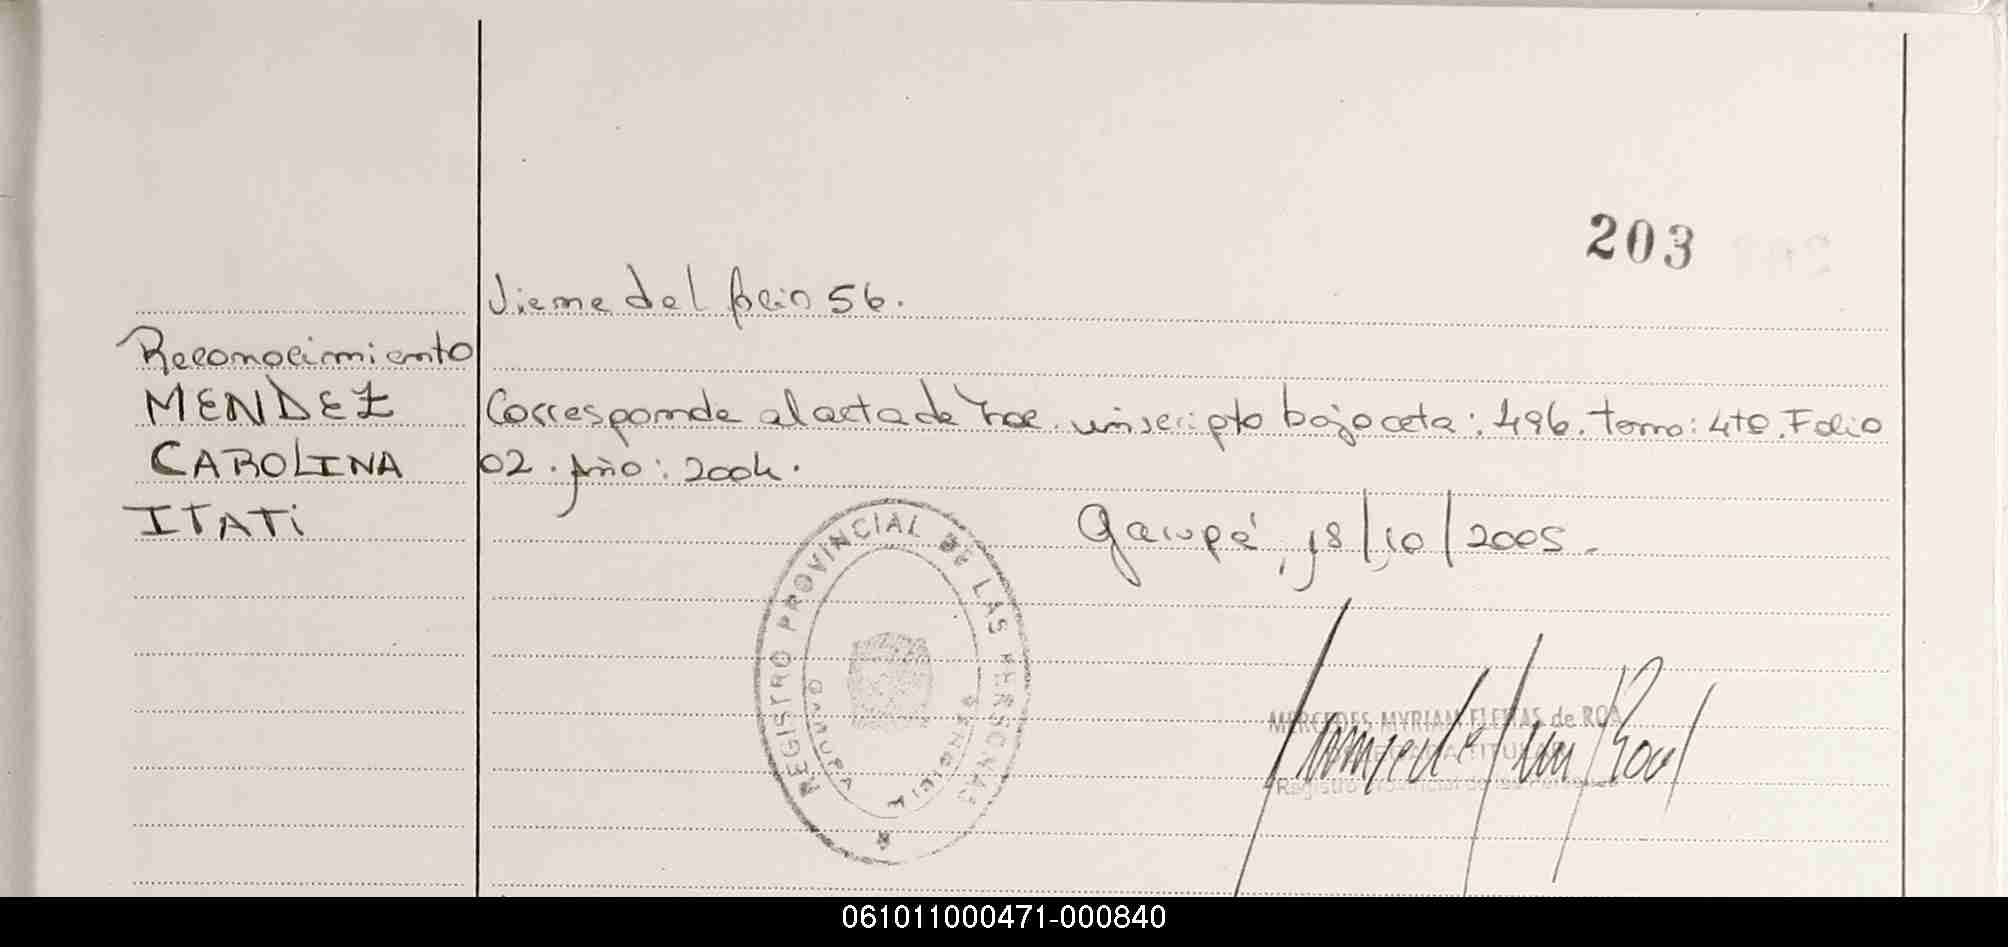 203
Viene del folio 56.
Reconocimiento
MENDEZ
CAROLINA
ITATI
Corresponde al acta de Nac. inscripto bajo acta: 496. Tomo: 4to. Folio
02. Año: 2004.
Garupá, 18/10/2005.
REGISTRO PROVINCIAL DE LAS PERSONAS
MERCEDES MYRIAM FLEITAS de ROA
TITULAR
Registro Provincial de las Personas
061011000471-000840